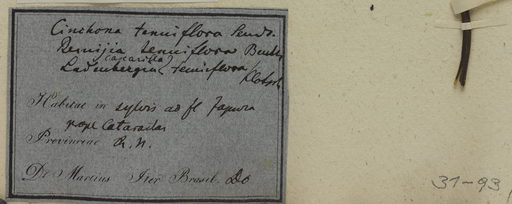 Cinchona tenuiflora
Remijia tenuiflora Benth
(Cascarilla)
Ladenbergia tenuiflora Klotzsch
Habitat in sylvis ad fl Japura
prope Cataractas
Provinciae R. N.
Dr Martius Iter Brasil. Do
31-93